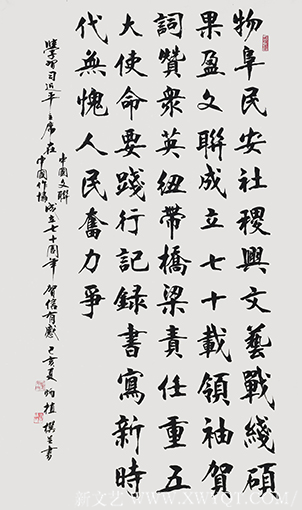 物阜民安社稷興文藝戰綫碩
果盈文聯成立七十載領袖賀
詞贊衆英紐帶橋梁責任重五
大使命要踐行記録書寫新時
代無愧人民奮力爭
學習习近平主席在
中國文聯
中國作協
成立七十周年賀信有感己亥夏植撰并書
新文艺